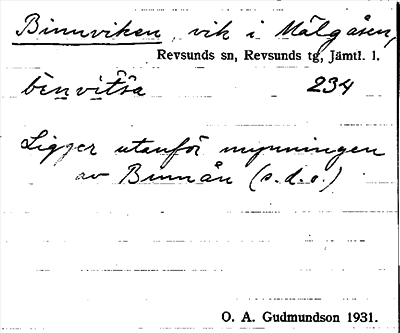 Binnviken, vik i Mälgåsen,
Revsunds sn, Revsunds tg, Jämtl. l.
bènvìt̂sa 234
Ligger utanför mynningen
av Binnån (s.d.o.)
O. A. Gudmundson 1931.